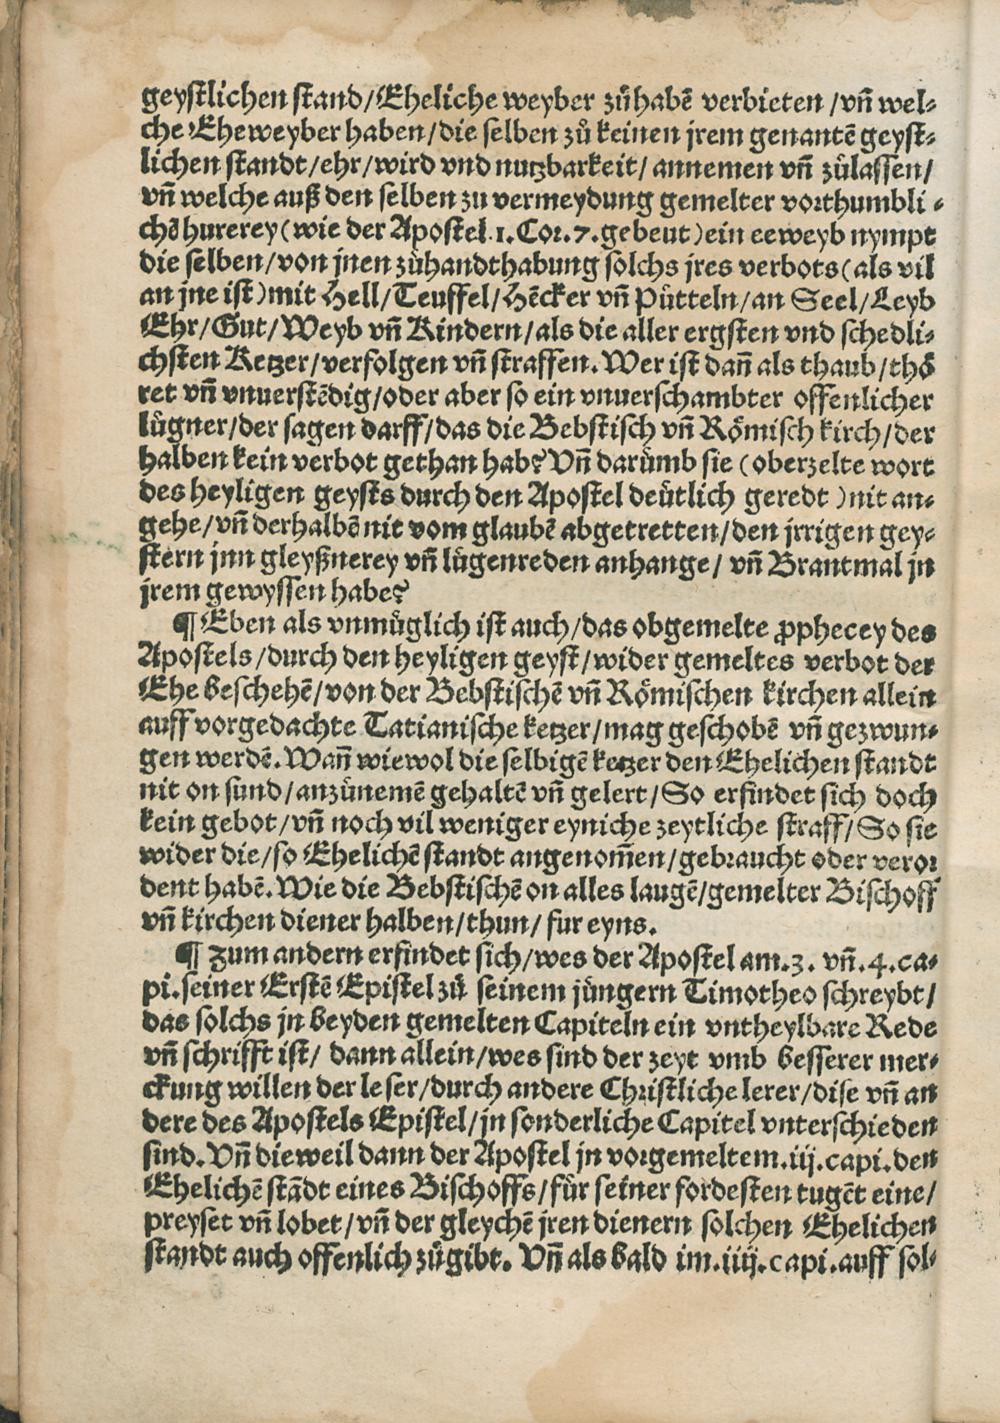 geystlichen stand/Eheliche weyber zůhabē verbieten /vn̄ wel⸗
che Eheweyber haben/die selben zů keinen jrem genantē geyst⸗
lichen standt/ehr/wird vnd nutzbarkeit/ annemen vn̄ zůlassen/
vn̄ welche auß den selben zu vermeydung gemelter vorthumbli⸗
chē hurerey(wie der Apostel.1.Cor.7.gebeut)ein eeweyb nympt
die selben/von jnen zůhandthabung solchs jres verbots(als vil
an jne ist)mit Hell/Teuffel/Hēcker vn̄ Pütteln/an Seel/Leyb
Ehr/Gut/Weyb vn̄ Kindern/als die aller ergsten vnd schedli⸗
chsten Ketzer/verfolgen vn̄ straffen.Wer ist dan̄ als thaub/thö
ret vn̄ vnuerstēdig/oder aber so ein vnuerschambter offenlicher
lügner/der sagen darff/das die Bebstisch vn̄ Römisch kirch/der
halben kein verbot gethan hab?Vn̄ darůmb sie (oberzelte wort
des heyligen geysts durch den Apostel deütlich geredt )nit an⸗
gehe/vn̄ derhalbē nit vom glaubē abgetretten/den jrrigen gey⸗
stern jnn gleyßnerey vn̄ lügenreden anhange/ vn̄ Brantmal jn
jrem gewyssen habe?
¶Eben als vnmüglich ist auch/das obgemelte ꝓphecey des
Apostels/durch den heyligen geyst/wider gemeltes verbot der
Ehe beschehē/von der Bebstischē vn̄ Römischen kirchen allein
auff vorgedachte Tatianische ketzer/mag geschobē vn̄ gezwun⸗
gen werdē.Wan̄ wiewol die selbigē ketzer den Ehelichen standt
nit on sünd/anzůnemē gehaltē vn̄ gelert/So erfindet sich doch
kein gebot/vn̄ noch vil weniger eyniche zeytliche straff/So sie
wider die/so Ehelichē standt angenom̄en/gebraucht oder veror
dent habē.Wie die Bebstischē on alles laugē/gemelter Bischoff
vn̄ kirchen diener halben/thun/ fur eyns.
¶ Zum andern erfindet sich/wes der Apostel am.3. vn̄.4.ca⸗
pi.seiner Erstē Epistel zů seinem jüngern Timotheo schreybt/
das solchs jn beyden gemelten Capiteln ein vntheylbare Rede
vn̄ schrifft ist/ dann allein/wes sind der zeyt vmb besserer mer⸗
ckung willen der leser/durch andere Christliche lerer/dise vn̄ an
dere des Apostels Epistel/jn sonderliche Capitel vnterschieden
sind.Vn̄ dieweil dann der Apostel jn vorgemeltem.iij.capi.den
Ehelichē stādt eines Bischoffs/für seiner fordesten tugēt eine/
preyset vn̄ lobet/vn̄ der gleychē jren dienern solchen Ehelichen
standt auch offenlich zůgibt. Vn̄ als bald im.iiij.capi.auff sol⸗